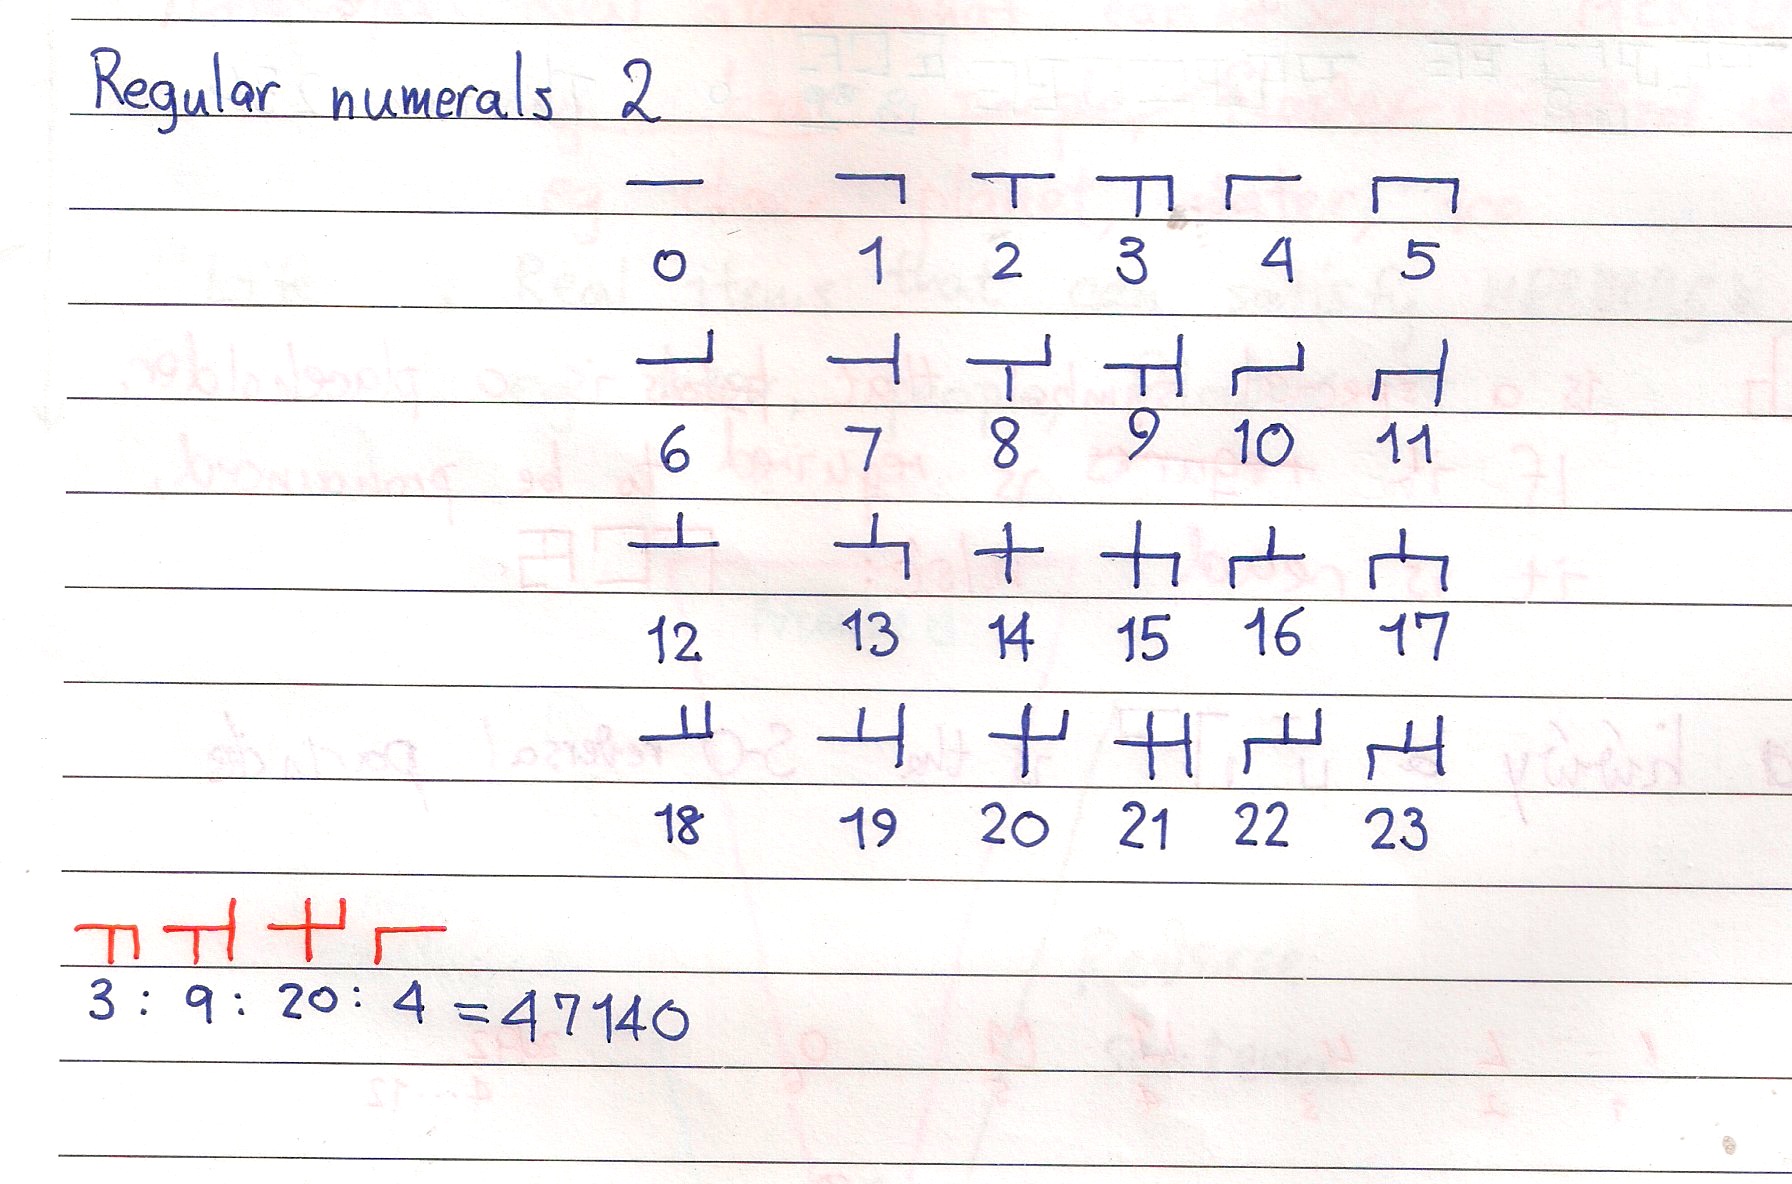 Regular numerals 2
0 1 2 3 4 5
6 7 8 9 10 11
12 13 14 15 16 17
18 19 20 21 22 23
3 : 9 : 20 : 4 = 47140